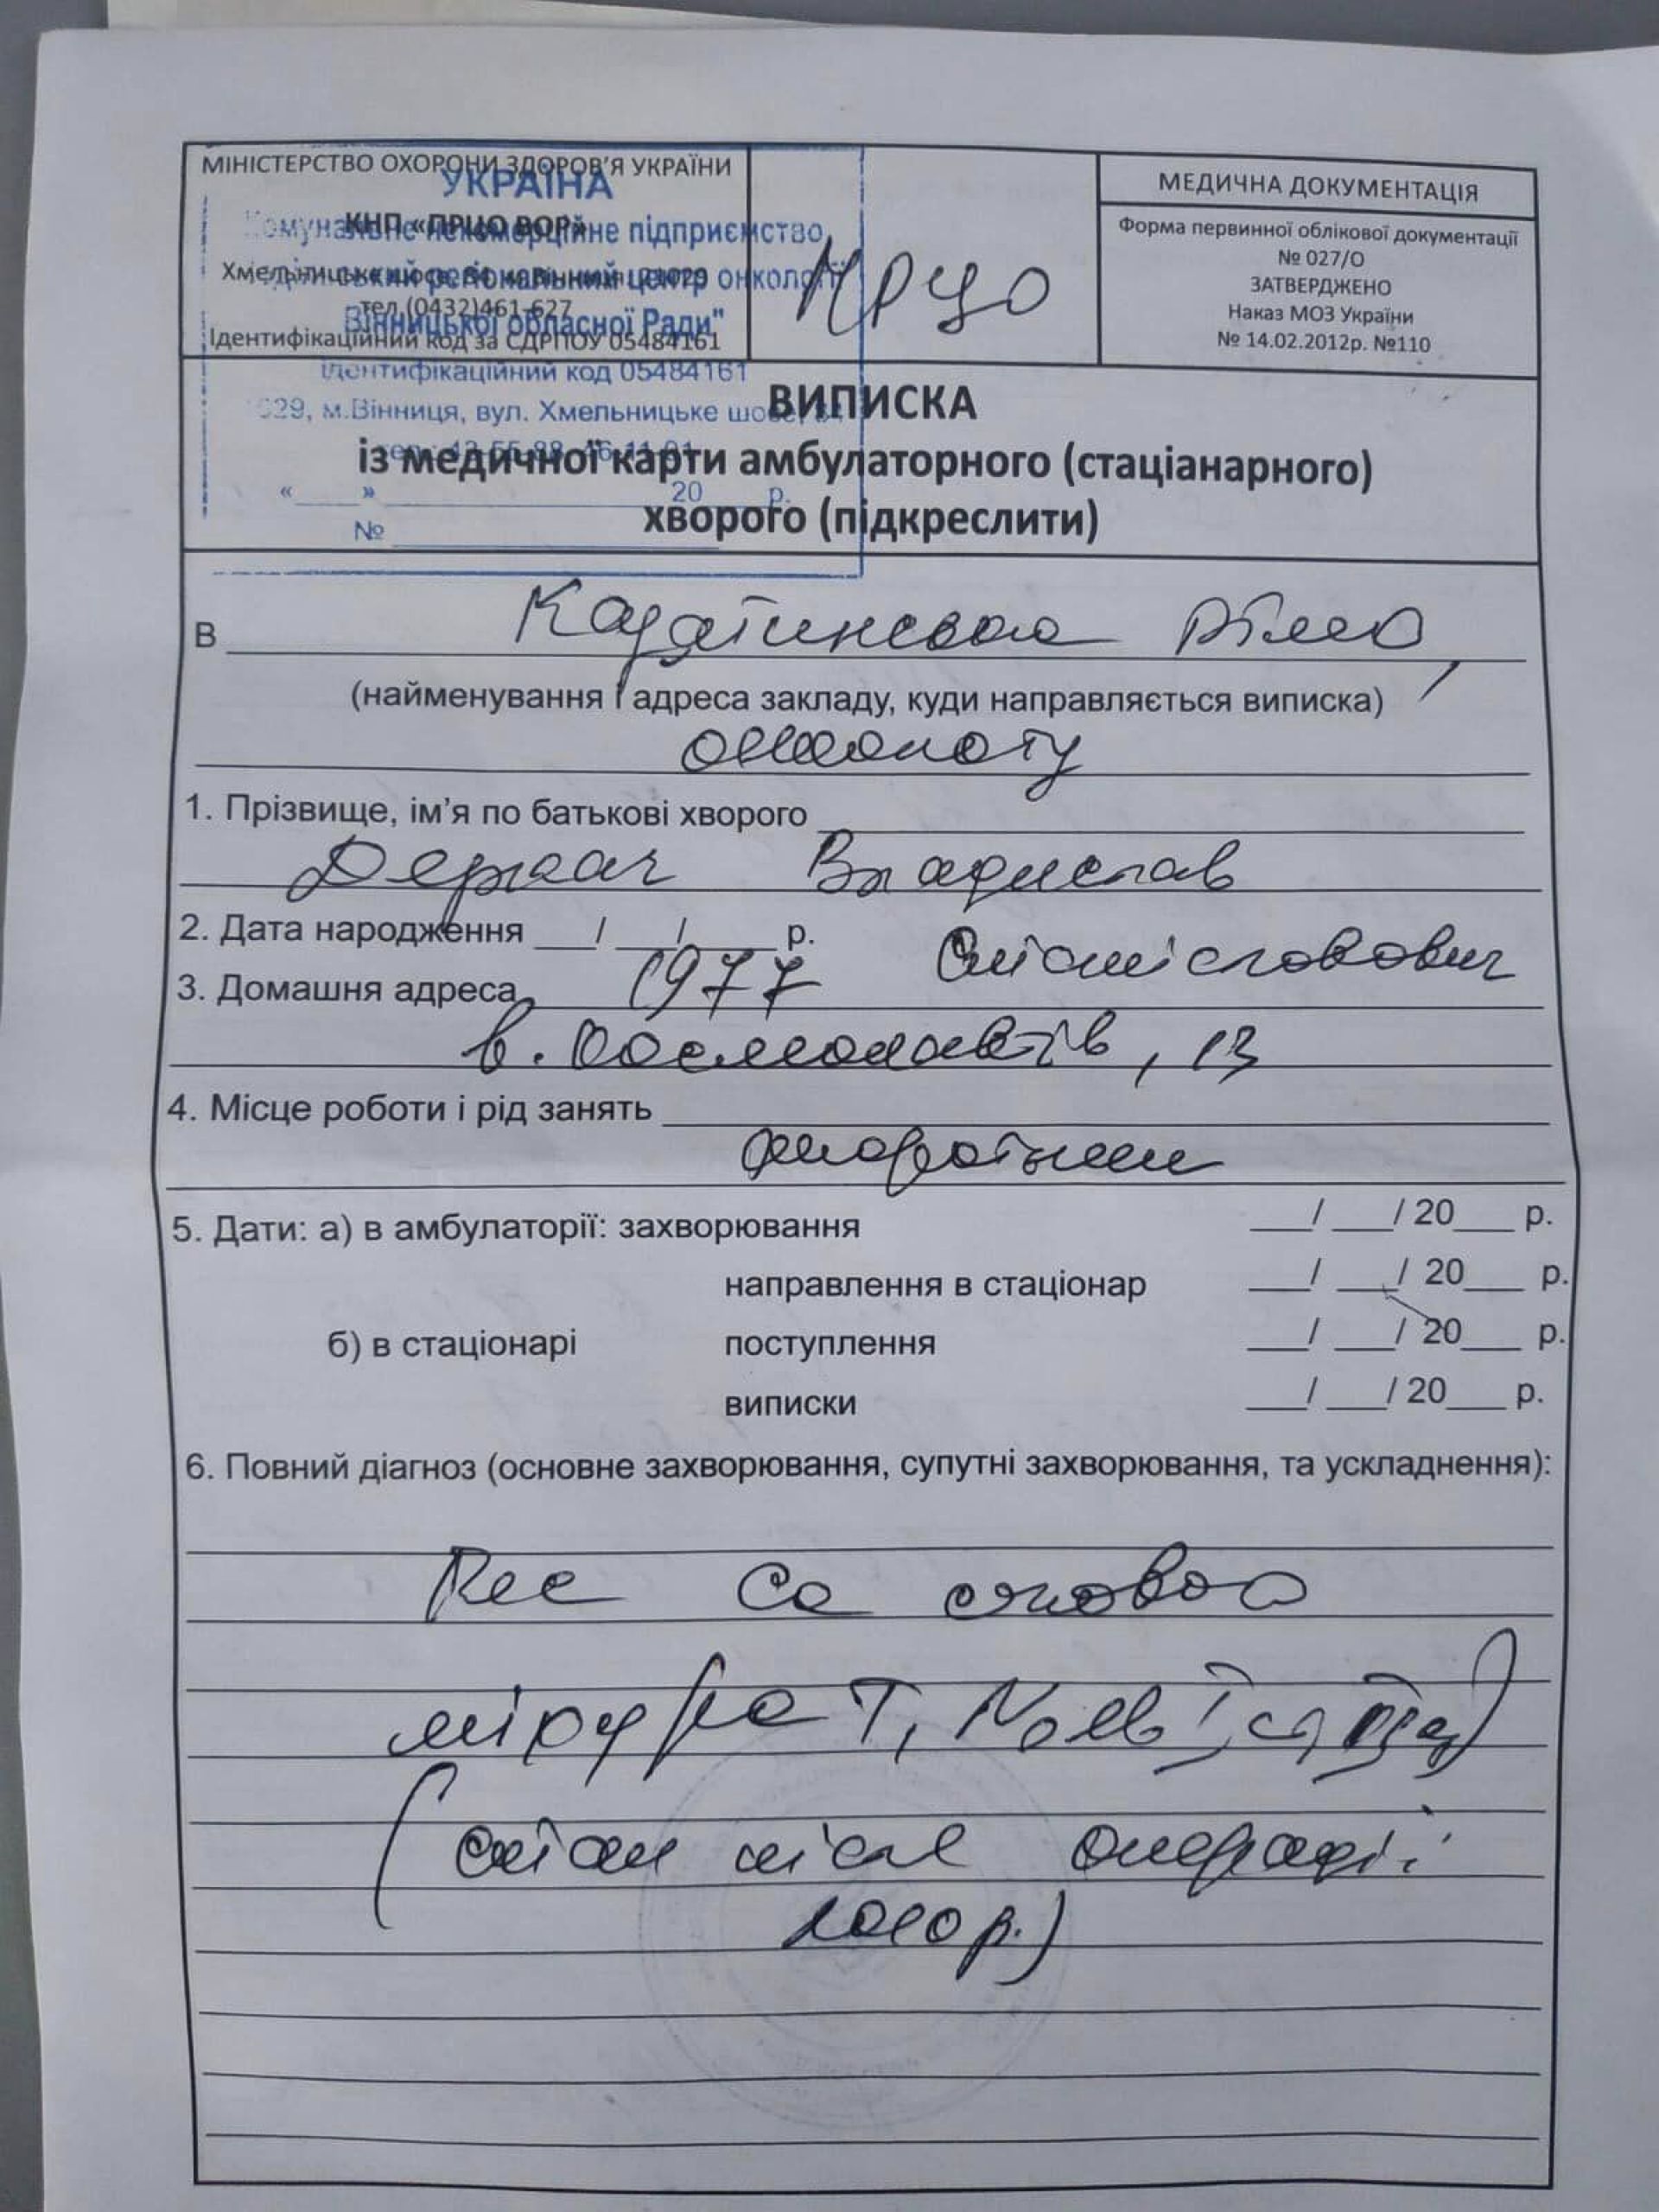 МІНІСТЕРСТВО ОХОРОНИ ЗДОРОВ'Я УКРАЇНИ
УКРАЇНА
КНП «ПРЦО ВОР»
Комунальне некомерційне підприємство
Хмельницьке шосе, 84, м. Вінниця, 21029
регіональний центр онкології
тел.(0432)461-627
Вінницької обласної Ради"
Ідентифікаційний код за ЄДРПОУ 05484161
ідентифікаційний код 05484161
029, м.Вінниця, вул. Хмельницьке шосе, 84
« » 20 р.
№
ПРЦО
МЕДИЧНА ДОКУМЕНТАЦІЯ
Форма первинної облікової документації
№ 027/О
ЗАТВЕРДЖЕНО
Наказ МОЗ України
№ 14.02.2012р. №110
ВИПИСКА
із медичної карти амбулаторного (стаціанарного)
хворого (підкреслити)
В
(найменування і адреса закладу, куди направляється виписка)
онкологу
1. Прізвище, ім'я по батькові хворого
Деркач Владислав
2. Дата народження ___/ ___/_____ р.
1977 Станіславович
3. Домашня адреса
в. Космонавтів, 13
4. Місце роботи і рід занять
5. Дати: а) в амбулаторії: захворювання ___/ ___/ 20___ р.
направлення в стаціонар ___/ ___/ 20___ р.
б) в стаціонарі поступлення ___/ ___/ 20___ р.
виписки ___/ ___/ 20___ р.
6. Повний діагноз (основне захворювання, супутні захворювання, та ускладнення):
Rec Ca сечового
міхура
(стан після операції
р.)